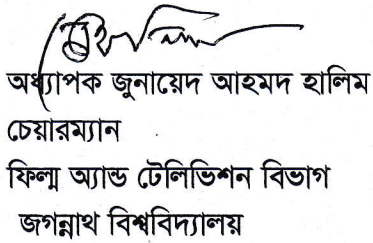 অধ্যাপক জুনায়েদ আহমদ হালিম
চেয়ারম্যান
ফিল্ম অ্যান্ড টেলিভিশন বিভাগ
জগন্নাথ বিশ্ববিদ্যালয়